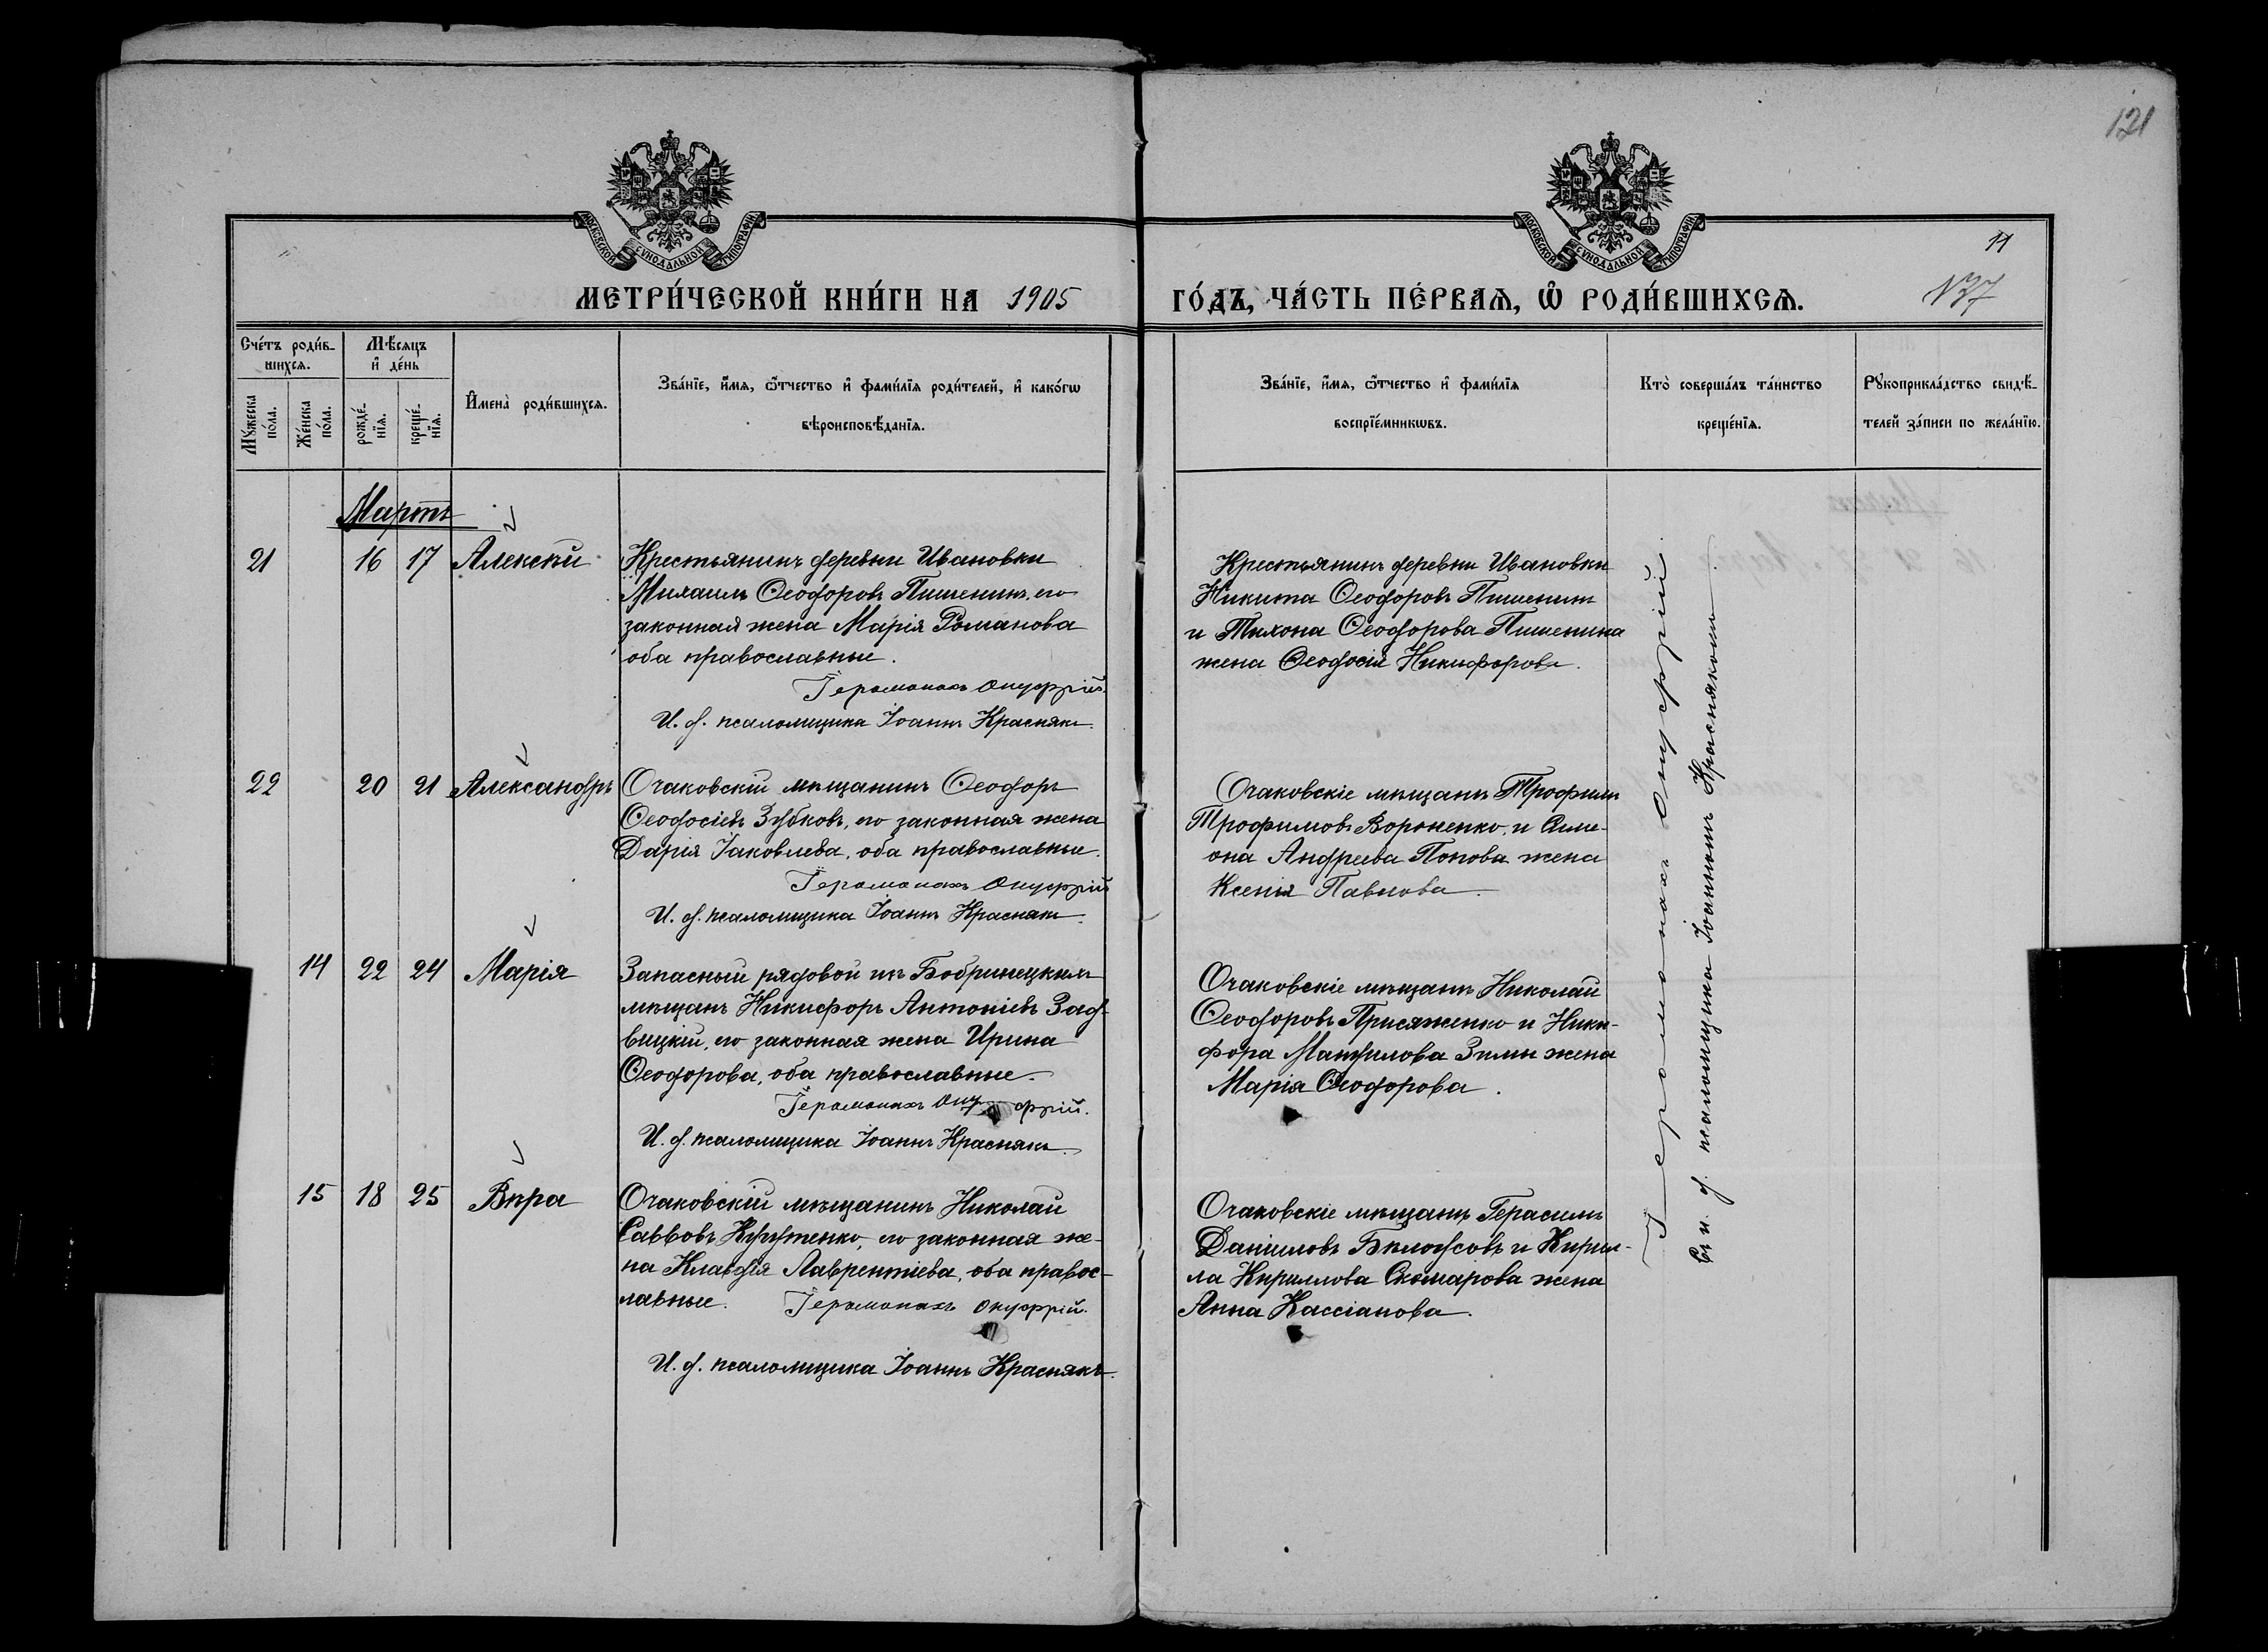 121
МОСКОВСКОЙ СѴНОДАЛЬНОЙ ТИПОГРАФІИ
МОСКОВСКОЙ СѴНОДАЛЬНОЙ ТИПОГРАФІИ
11
№37
МЕТРИ́ЧЕСКОЙ КНИ́ГИ НА 1905
ГО́ДЪ, ЧА́СТЬ ПЕ́РВАѦ, Ѽ РОДИ́ВШИХСѦ.
Сче́тъ роди́в-
шихсѧ.
Мꙋ́жеска
по́ла.
Же́нска
по́ла.
Мѣ́сѧцъ
и҆ де́нь
рожде́-
нїѧ.
креще́-
нїѧ.
И҆мена̀ роди́вшихсѧ.
Зва́нїе, и҆́мѧ, ѻ҆́тчество и҆ фами́лїѧ роди́телей, и҆ како́гѡ
вѣроисповѣ́данїѧ.
Зва́нїе, и҆́мѧ, ѻ҆́тчество и҆ фами́лїѧ
воспрїе́мникѡвъ.
Кто̀ соверша́лъ та́инство
креще́нїѧ.
Рꙋкоприкла́дство свидѣ́-
телей за́писи по жела́нїю.
Мартъ
21 16 17 Алексѣй
Крестьянинъ деревни Ивановки
Михаилъ Ѳеодоровъ Пишенинъ, его
законная жена Марія Романова
оба православные.
Іеромонахъ Онуфрій.
И. д. псаломщика Іоаннъ Краснякъ.
Крестьянинъ деревни Ивановки
Никита Ѳеодоровъ Пишенинъ
и Тихона Ѳеодорова Пишенина
жена Ѳеодосія Никифорова.
22 20 21 Александръ
Очаковскій мѣщанинъ Ѳеодоръ
Ѳеодосіевъ Зубковъ, его законная жена
Дарія Іаковлева, оба православные.
Іеромонахъ Онуфрій
И. д. псаломщика Іоаннъ Краснякъ.
Очаковскіе мѣщане Трофимъ
Трофимовъ Вороненко, и Симе-
она Андреева Попова жена
Ксенія Павлова.
14 22 24 Марія
Запасный рядовой изъ Бобринецкихъ
мѣщанъ Никифоръ Антоніевъ Зад-
вицкій, его законная жена Ирина
Ѳеодорова, оба православные.
Іеромонахъ Онуфрій.
И. д. псаломщика Іоаннъ Краснякъ.
Очаковскіе мѣщане Николай
Ѳеодоровъ Присяженко и Ники-
фора Мануилова Зимы жена
Марія Ѳеодорова.
15 18 25 Вѣра
Очаковскій мѣщанинъ Николай
Саввовъ, его законная же-
на Клавдія Лаврентіева, оба правос-
лавные. Іеромонахъ Онуфрій.
И. д. псаломщика Іоаннъ Краснякъ.
Очаковскіе мѣщане Герасимъ
Даніиловъ Бѣлоусовъ и Кирил-
ла Кириллова Скомарова жена
Анна Кассіанова.
Іеромонахъ Онуфрій
съ и. д. псаломщика Іоанномъ Краснякомъ.